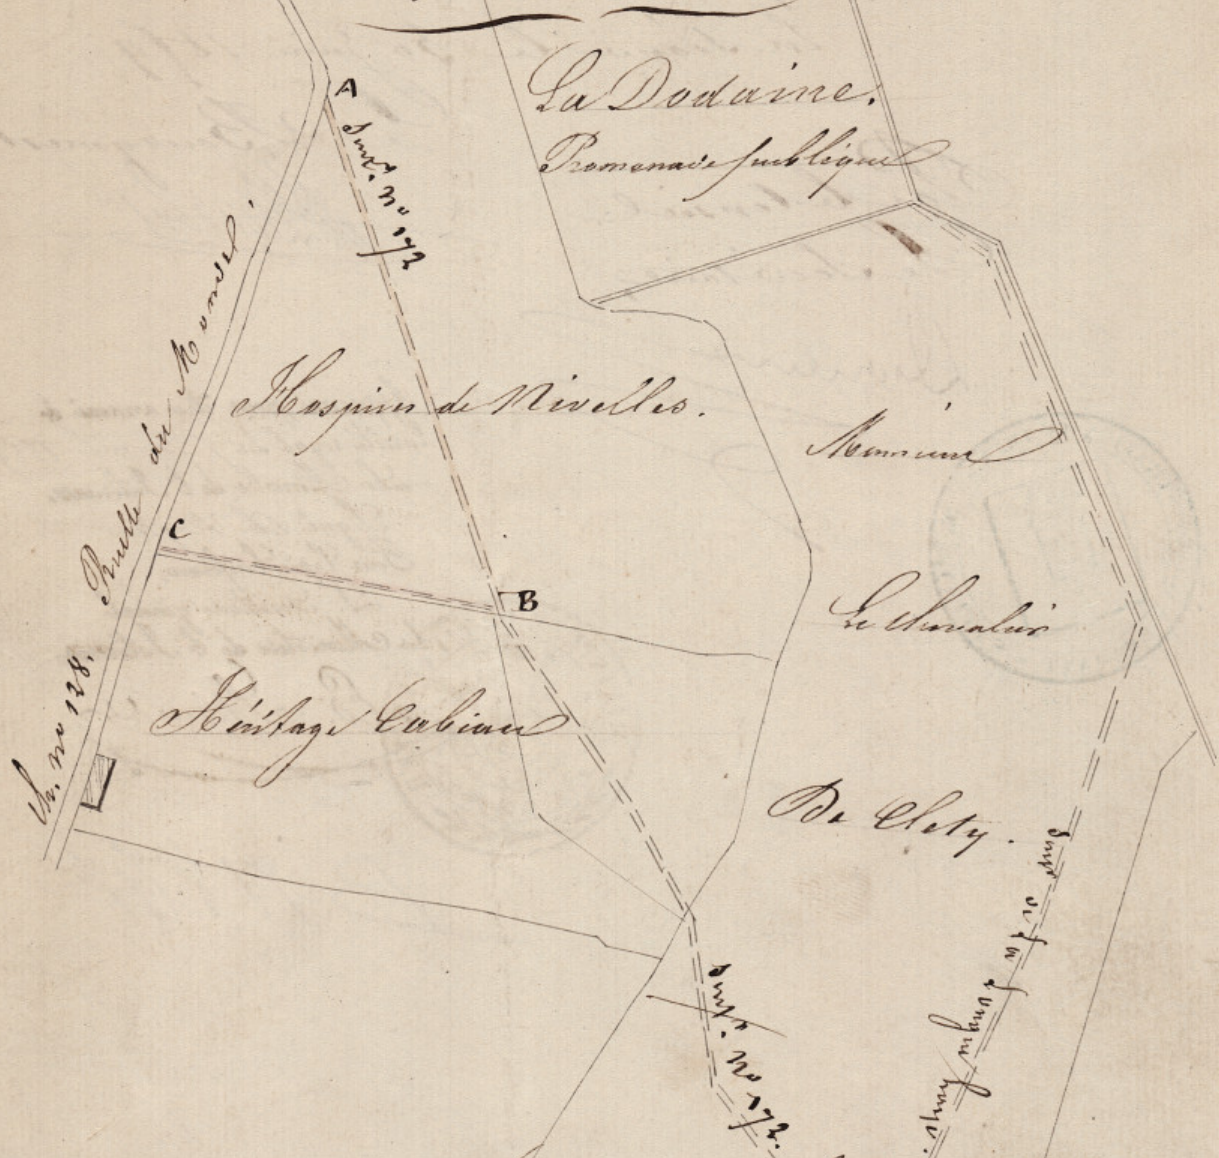 La Dodaine.
Promenade publique
A
Sent. No 172
Ruelle du Monde.
Hospices de Nivelles.
Monsieur
C
B
Le Chevalier
Ch. No 128.
Héritage Cabiau
De Clety.
Sent. No 172.